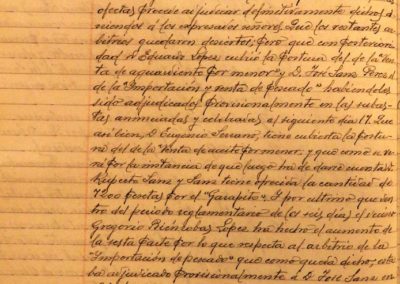 ofertas, procede adjudicar definitivamente dichos ar-
riendos á los expresados señores. Que los restantes ar-
bitrios quedaron desiertos, pero que con posteriori-
dad D. Eduardo Lopez cubrió la postura del de la "Ven-
ta de aguardiente por menor" y D. José Sanz Perez el
de la "Importación y venta de Pescado" habiendoles
sido adjudicados provisionalmente en las subas-
tas anunciadas y celebradas al siguiente dia 17. Que
asi bien, D. Eugenio Serrano, tiene cubierta la postu-
ra del de la Venta de aceite por menor, y que como se ve-
rá por la instancia de que luego ha de darse cuenta D.
Ruperto Sanz y Sanz tiene ofrecida la cantidad de
7200 Pesetas por el "Garapito". Y por ultimo que den-
tro del periodo reglamentario de los seis dias, el vecino
Gregorio Lopez ha hecho el aumento de
la sexta parte por lo que respecta al arbitrio de la
"Importación de pescado" que como queda dicho, esta-
ba adjudicado provisionalmente á D. José Sanz en